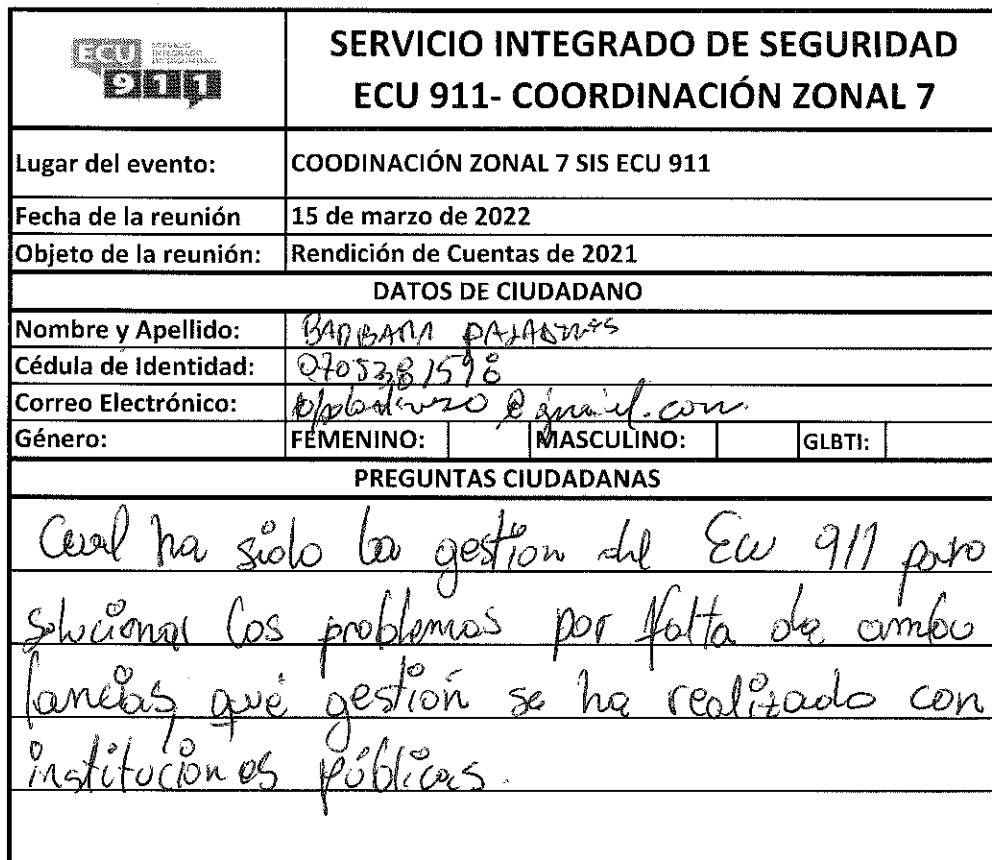 ECU SERVICIO INTEGRADO DE SEGURIDAD
911
SERVICIO INTEGRADO DE SEGURIDAD
ECU 911- COORDINACIÓN ZONAL 7
Lugar del evento: COODINACIÓN ZONAL 7 SIS ECU 911
Fecha de la reunión 15 de marzo de 2022
Objeto de la reunión: Rendición de Cuentas de 2021
DATOS DE CIUDADANO
Nombre y Apellido: BARBARA PALADINES
Cédula de Identidad: 0705381598
Correo Electrónico: @gmail.com
Género: FEMENINO: MASCULINO: GLBTI:
PREGUNTAS CIUDADANAS
Cual ha sido la gestion del Ecu 911 para
solucionar los problemas por falta de ambu
lancias, qué gestión se ha realizado con
instituciones públicas.